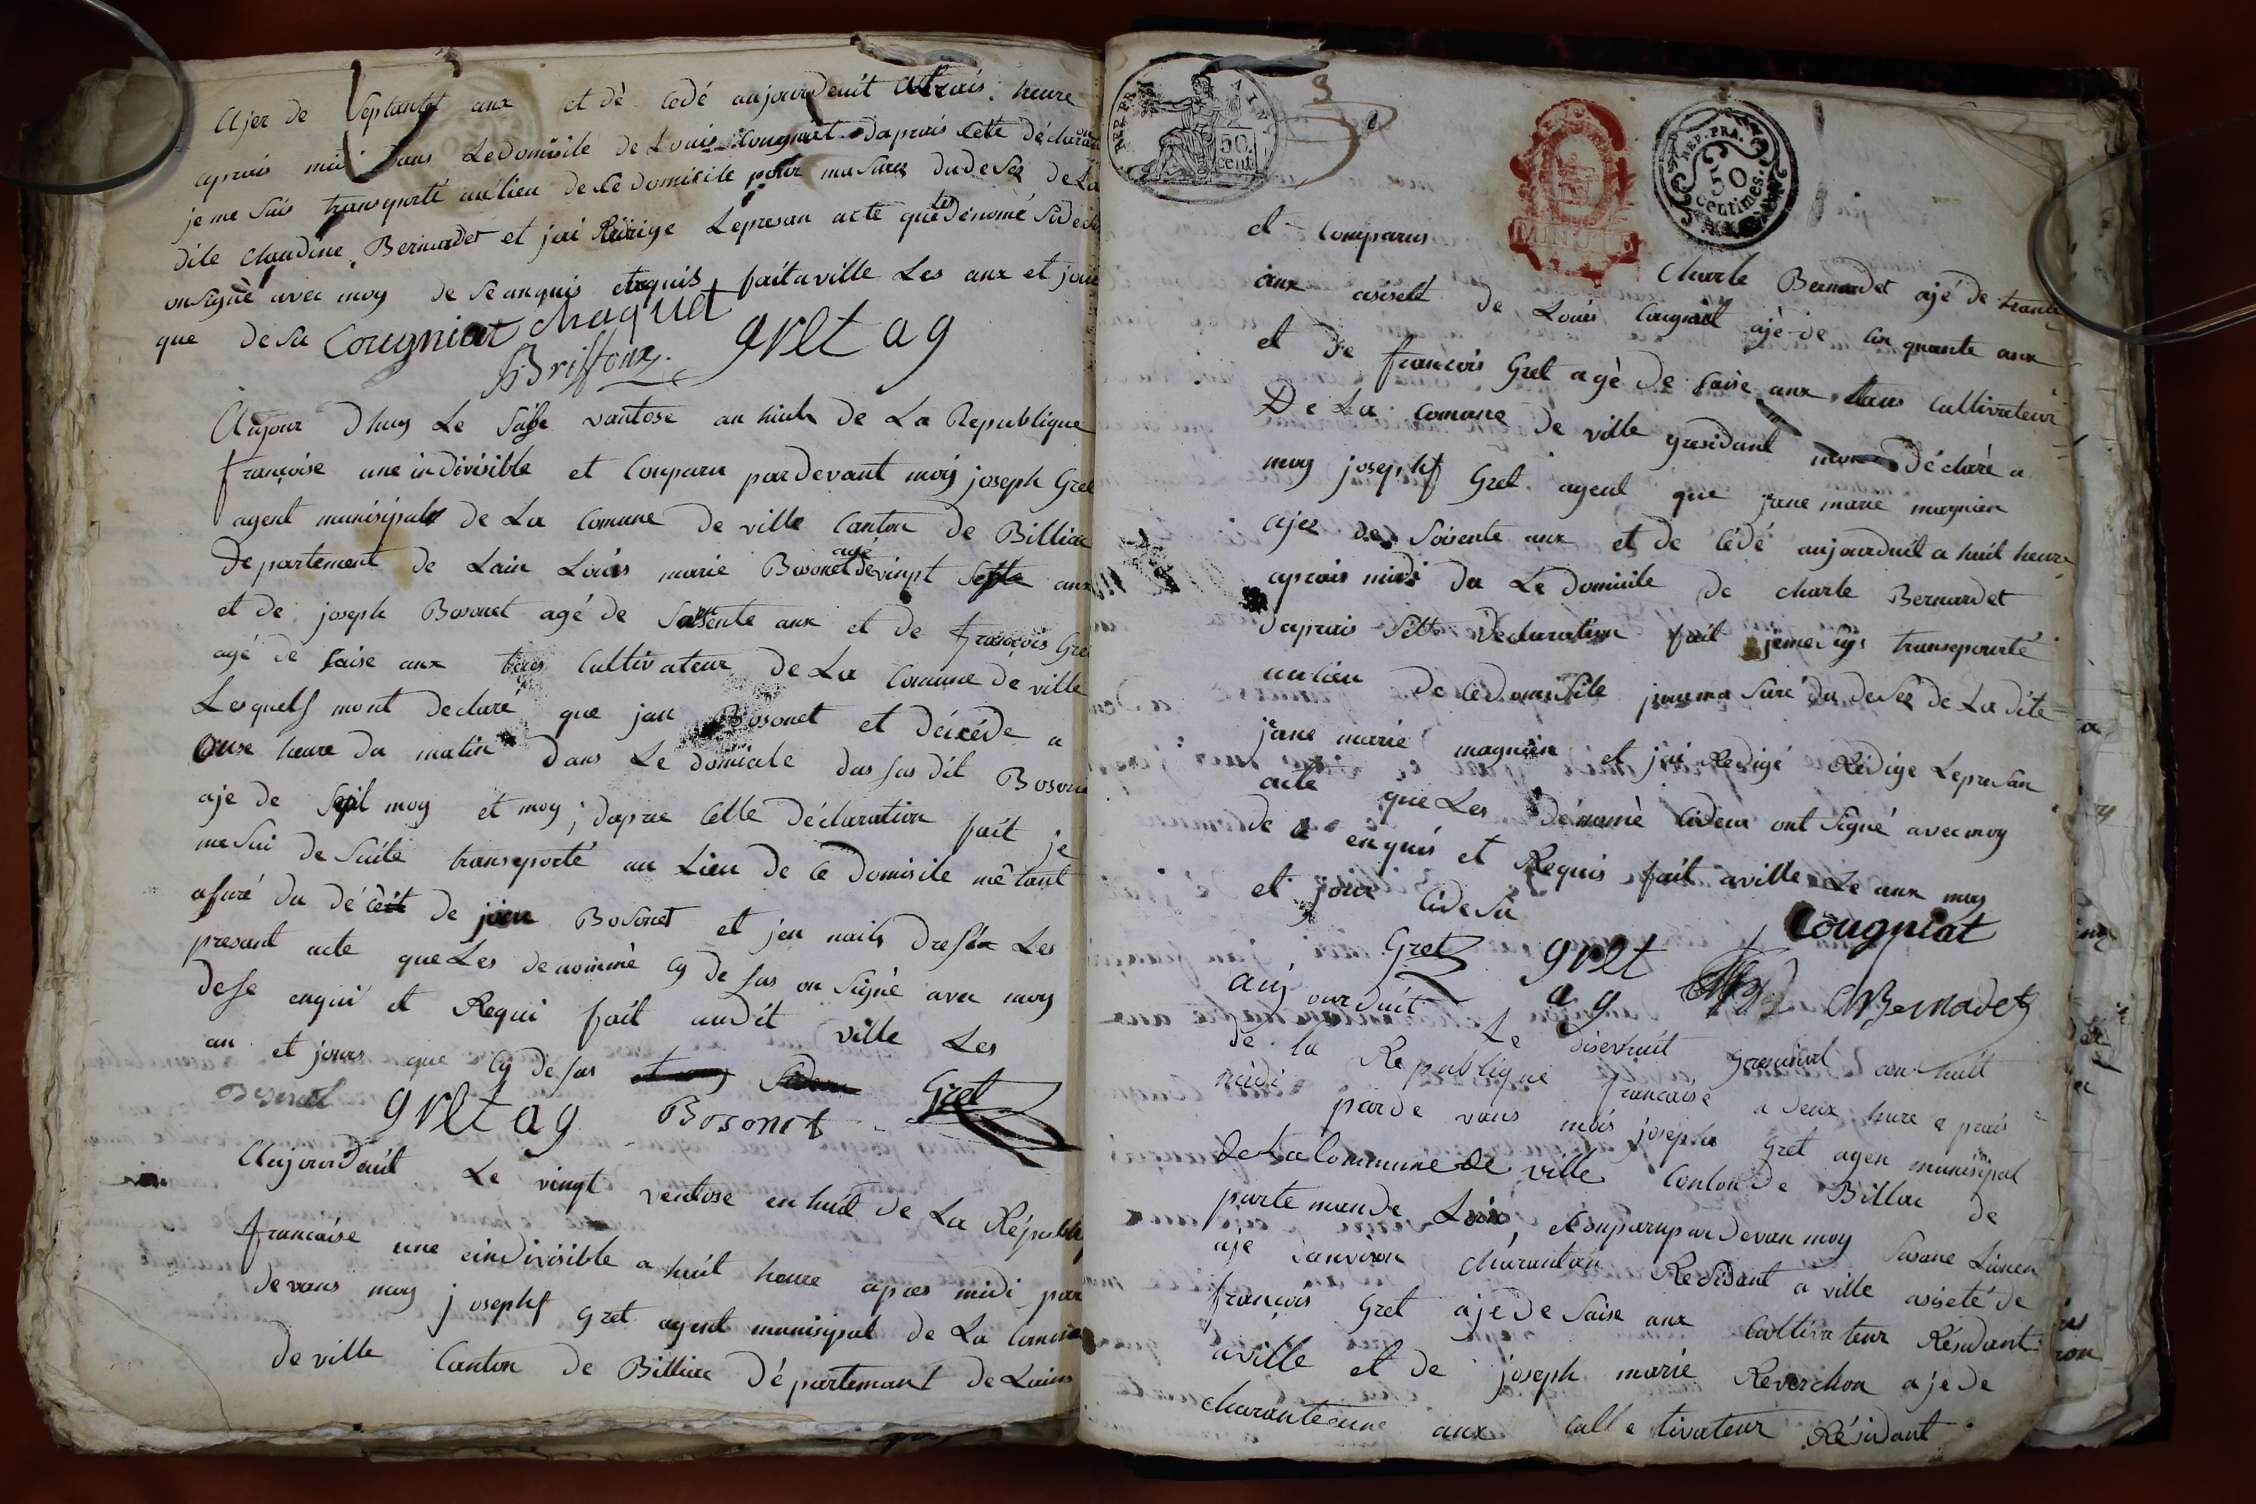 Ajer de Septante aux et dè cedé aujourdeuit a trais heure
aprais midi dans Ledomisile de Louis Cougniat daprais Cette déclaration
je me Suis transporté aulieu de Ce domicile pour masurer du desez de La
dite Claudine Bernardet et jai Rédige Lepresan acte que les dénomé
onsigné avec moy de Se anquis et requis fait a ville Les aux et jour
que desu Cougniat chaquet
Briffonz gret ag
Aujour dhuy Le Saise vantose an huit de La Republique
françoise une indivisible et Conparu pardevant moy joseph Gret
agent munisipale de La Comune de ville Canton de Billiac
Departement de Lain Louis marie Bosonet agé de vinpt Septe aux
et de joseph Bosonet agé de Soisente aux et de françois Gret
agé de Saise aux tous Cultivateur de La Comune de ville
Lesquels mont declaré que jan Bosonet et décéde a
onse heure du matin dans Le domicile dus sus dit Bosonet
aje de Sept moy et moy, daprae Cette déclaration fait je
me Sui de Suite transporté au Lieu de Ce Domisile mè tant
assuré du décét de jean Bosonet et jen naits dressér Les
presant acte queLes denommé Cy de sus on Signè avec moy
desse enqui et Requi fait audit ville Les
an et jours que Cy de sus
Bosonet gret ag Bosonet Gret
Aujourdeuit Le vingt ventose en huit de La Républi
francaise une eindivisible a huit heure apres midi par
devans moy josephf Gret agent munisipal de La Comune
de ville Canton de Billiac Départemant de Lains
REP. FRA.
50 cent
3
MINUTE
REP. FRA.
50 centimes.
et Comparus Charle Bernardet ajé de trante
aux asisett de Louis Cougniat ajè de Cin quante aux
et de francois Gret agè de Saise aux tous Cultivateur
De La Comune de ville gresidant mon déclaré a
moy josephf Gret agent que jane marie magnien
ajee de Soisente aux et de cédé aujourduit a huit heure
aprais midi du Le domicile de charle Bernardet
daprais Sette Declaration fait jeme Suis transeporté
aulieu de Ce domisile pour ma Suré du desez de La dite
jane marie magnien et jai Redigé Rédige Lepresan
acte queLes dénomè Cidesu ont Signé avec moy
de enquis et Requis fait a ville Le aux moy
et jour Cidesu
Cougniat
Gret gret ag CBernadet
aujourduit Le diserhuit Germinal an huit
de la Republique francaise a deux hure a prais
midi parde vans mois joseph Gret agen munisipal
de La Commune de ville Conton de Billiac de
parte mande Loin, Conparupardevan moy Susane Lianen
aje danviron charantan Residant a ville asiseté de
françois Gret ajé de Saise aux Cultivateur Résidant
aville et de joseph marie Reverchon aje de
charantecune aux Calle tivateur Résidant